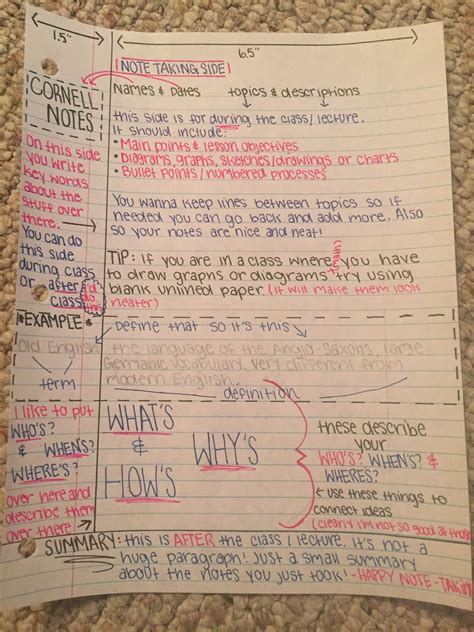 1.5"
6.5"
NOTE TAKING SIDE
CORNELL
NOTES
Names & Dates topics & descriptions
On this side
you write
key words
about the
stuff over
there.
You can do
this side
during class
or after
class
I'd
do
this
this side is for during the class/lecture.
It should include:
• Main points & lesson objectives
• Diagrams, graphs, sketches/drawings or charts
• Bullet Points/numbered processes
You wanna keep lines between topics so if
needed you can go back and add more. Also
so your notes are nice and neat!
TIP: if you are in a class where you have
(math)
to draw graphs or diagrams try using
blank unlined paper (it will make them look
neater)
*EXAMPLE*
Define that so it's this
Old English
the language of the Anglo-Saxons, large
Germanic vocabulary. Very different from
modern English.
term
definition
I like to put
WHO'S?
& WHEN'S?
WHERE'S?
over here and
describe them
over there
WHAT'S
& WHY'S
HOW'S
these describe
your
WHO'S? WHEN'S? &
WHERES?
use these things to
connect ideas
(clearly I'm not so good at those
SUMMARY: this is AFTER the class / lecture. It's not a
huge paragraph! Just a small summary
about the notes you just took! - HAPPY NOTE -TAKIN